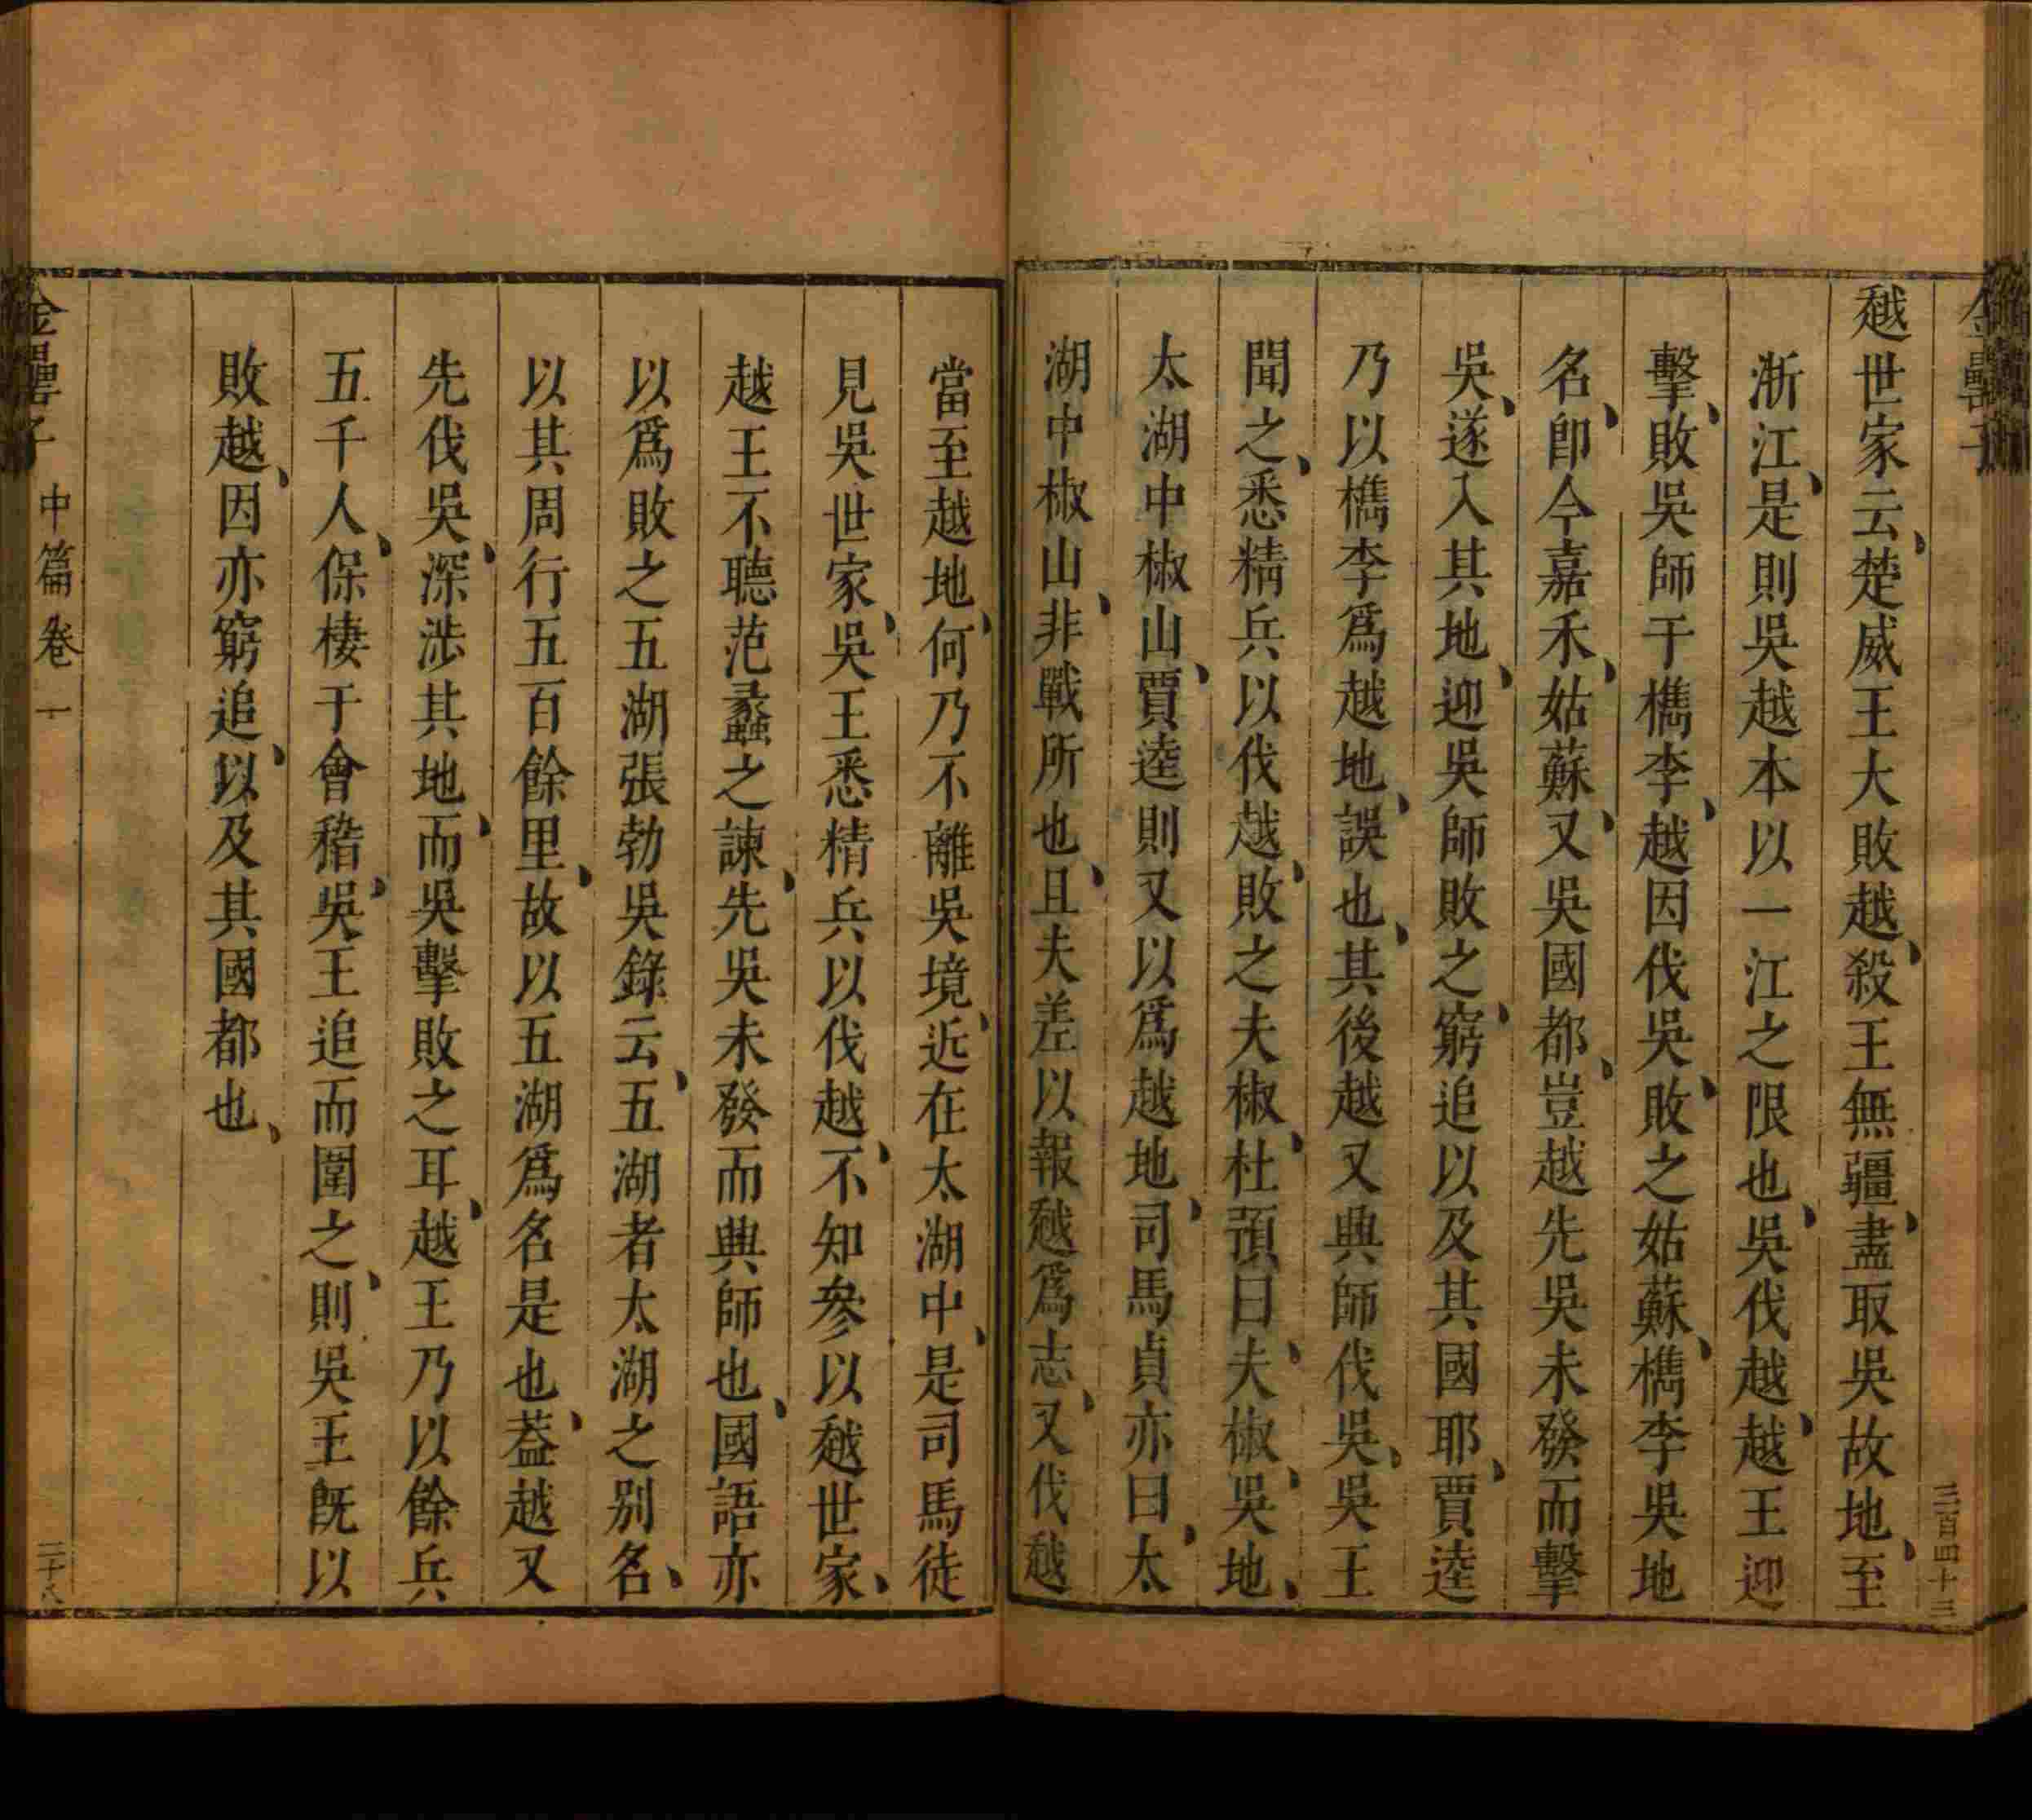 金罍子
三百四十三
越世家云、楚威王大敗越、殺王無疆、盡取吳故地、至
浙江、是則吳越本以一江之限也、吳伐越、越王迎
擊、敗吳師于檇李、越因伐吳、敗之姑蘇、檇李吳地
名、卽今嘉禾、姑蘇、又吳國都、豈越先吳未發而擊
吳、遂入其地、迎吳師敗之、窮追以及其國耶、賈逵
乃以檇李爲越地、誤也、其後越又興師伐吳、吳王
聞之、悉精兵以伐越、敗之夫椒、杜預曰、夫椒、吳地、
太湖中椒山、賈逵則又以爲越地、司馬貞亦曰、太
湖中椒山、非戰所也、且夫差以報越爲志、又伐越
當至越地、何乃不離吳境、近在太湖中、是司馬徒
見吳世家、吳王悉精兵以伐越、不知參以越世家、
越王不聽范蠡之諫、先吳未發而興師也、國語亦
以爲敗之五湖張勃吳錄云、五湖者太湖之別名、
以其周行五百餘里、故以五湖爲名是也、葢越又
先伐吳、深涉其地、而吳擊敗之耳、越王乃以餘兵
五千人、保棲于會稽、吳王追而圍之、則吳王旣以
敗越、因亦窮追、以及其國都也、
金罍子
中篇卷一
二十八